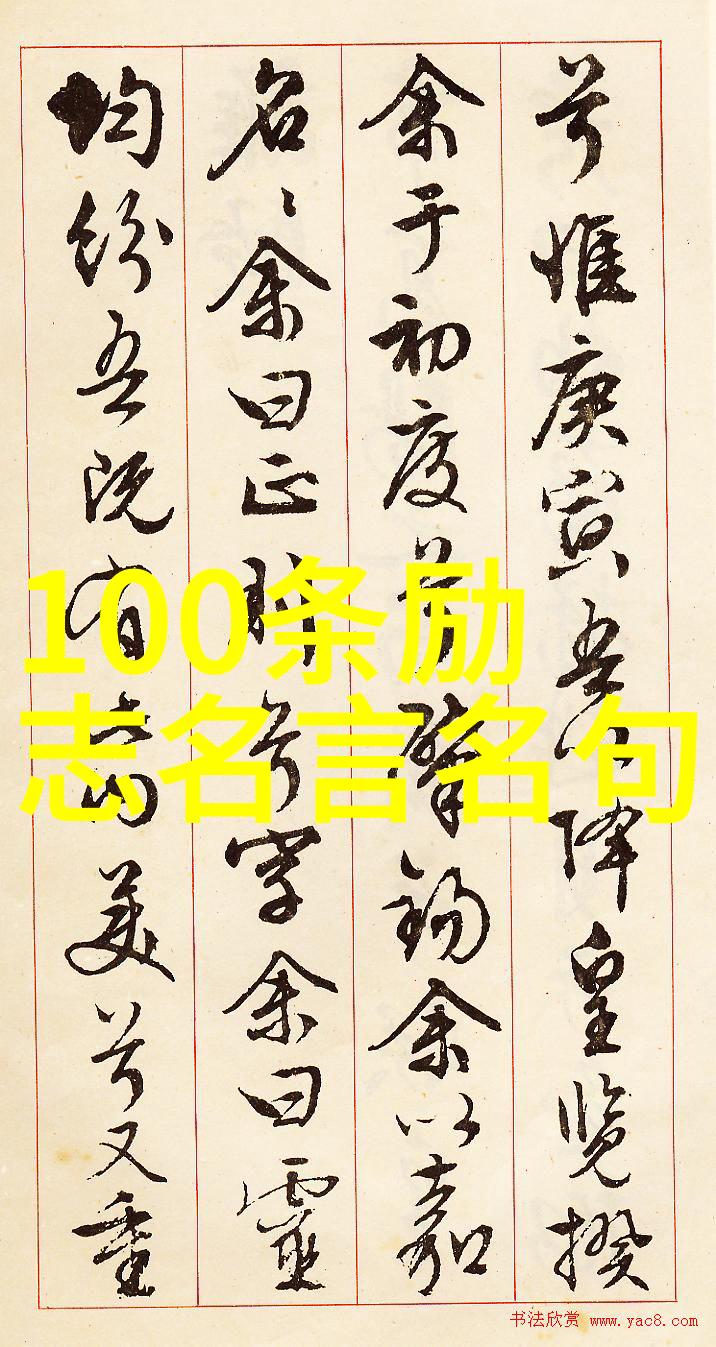 兮惟庚寅吾以降皇览揆
余于初度兮肇锡余以嘉
名〻余曰正则兮字余曰靈
均纷吾既有此内美兮又重
100条励
志名言名句
书法欣赏 www.yac8.com